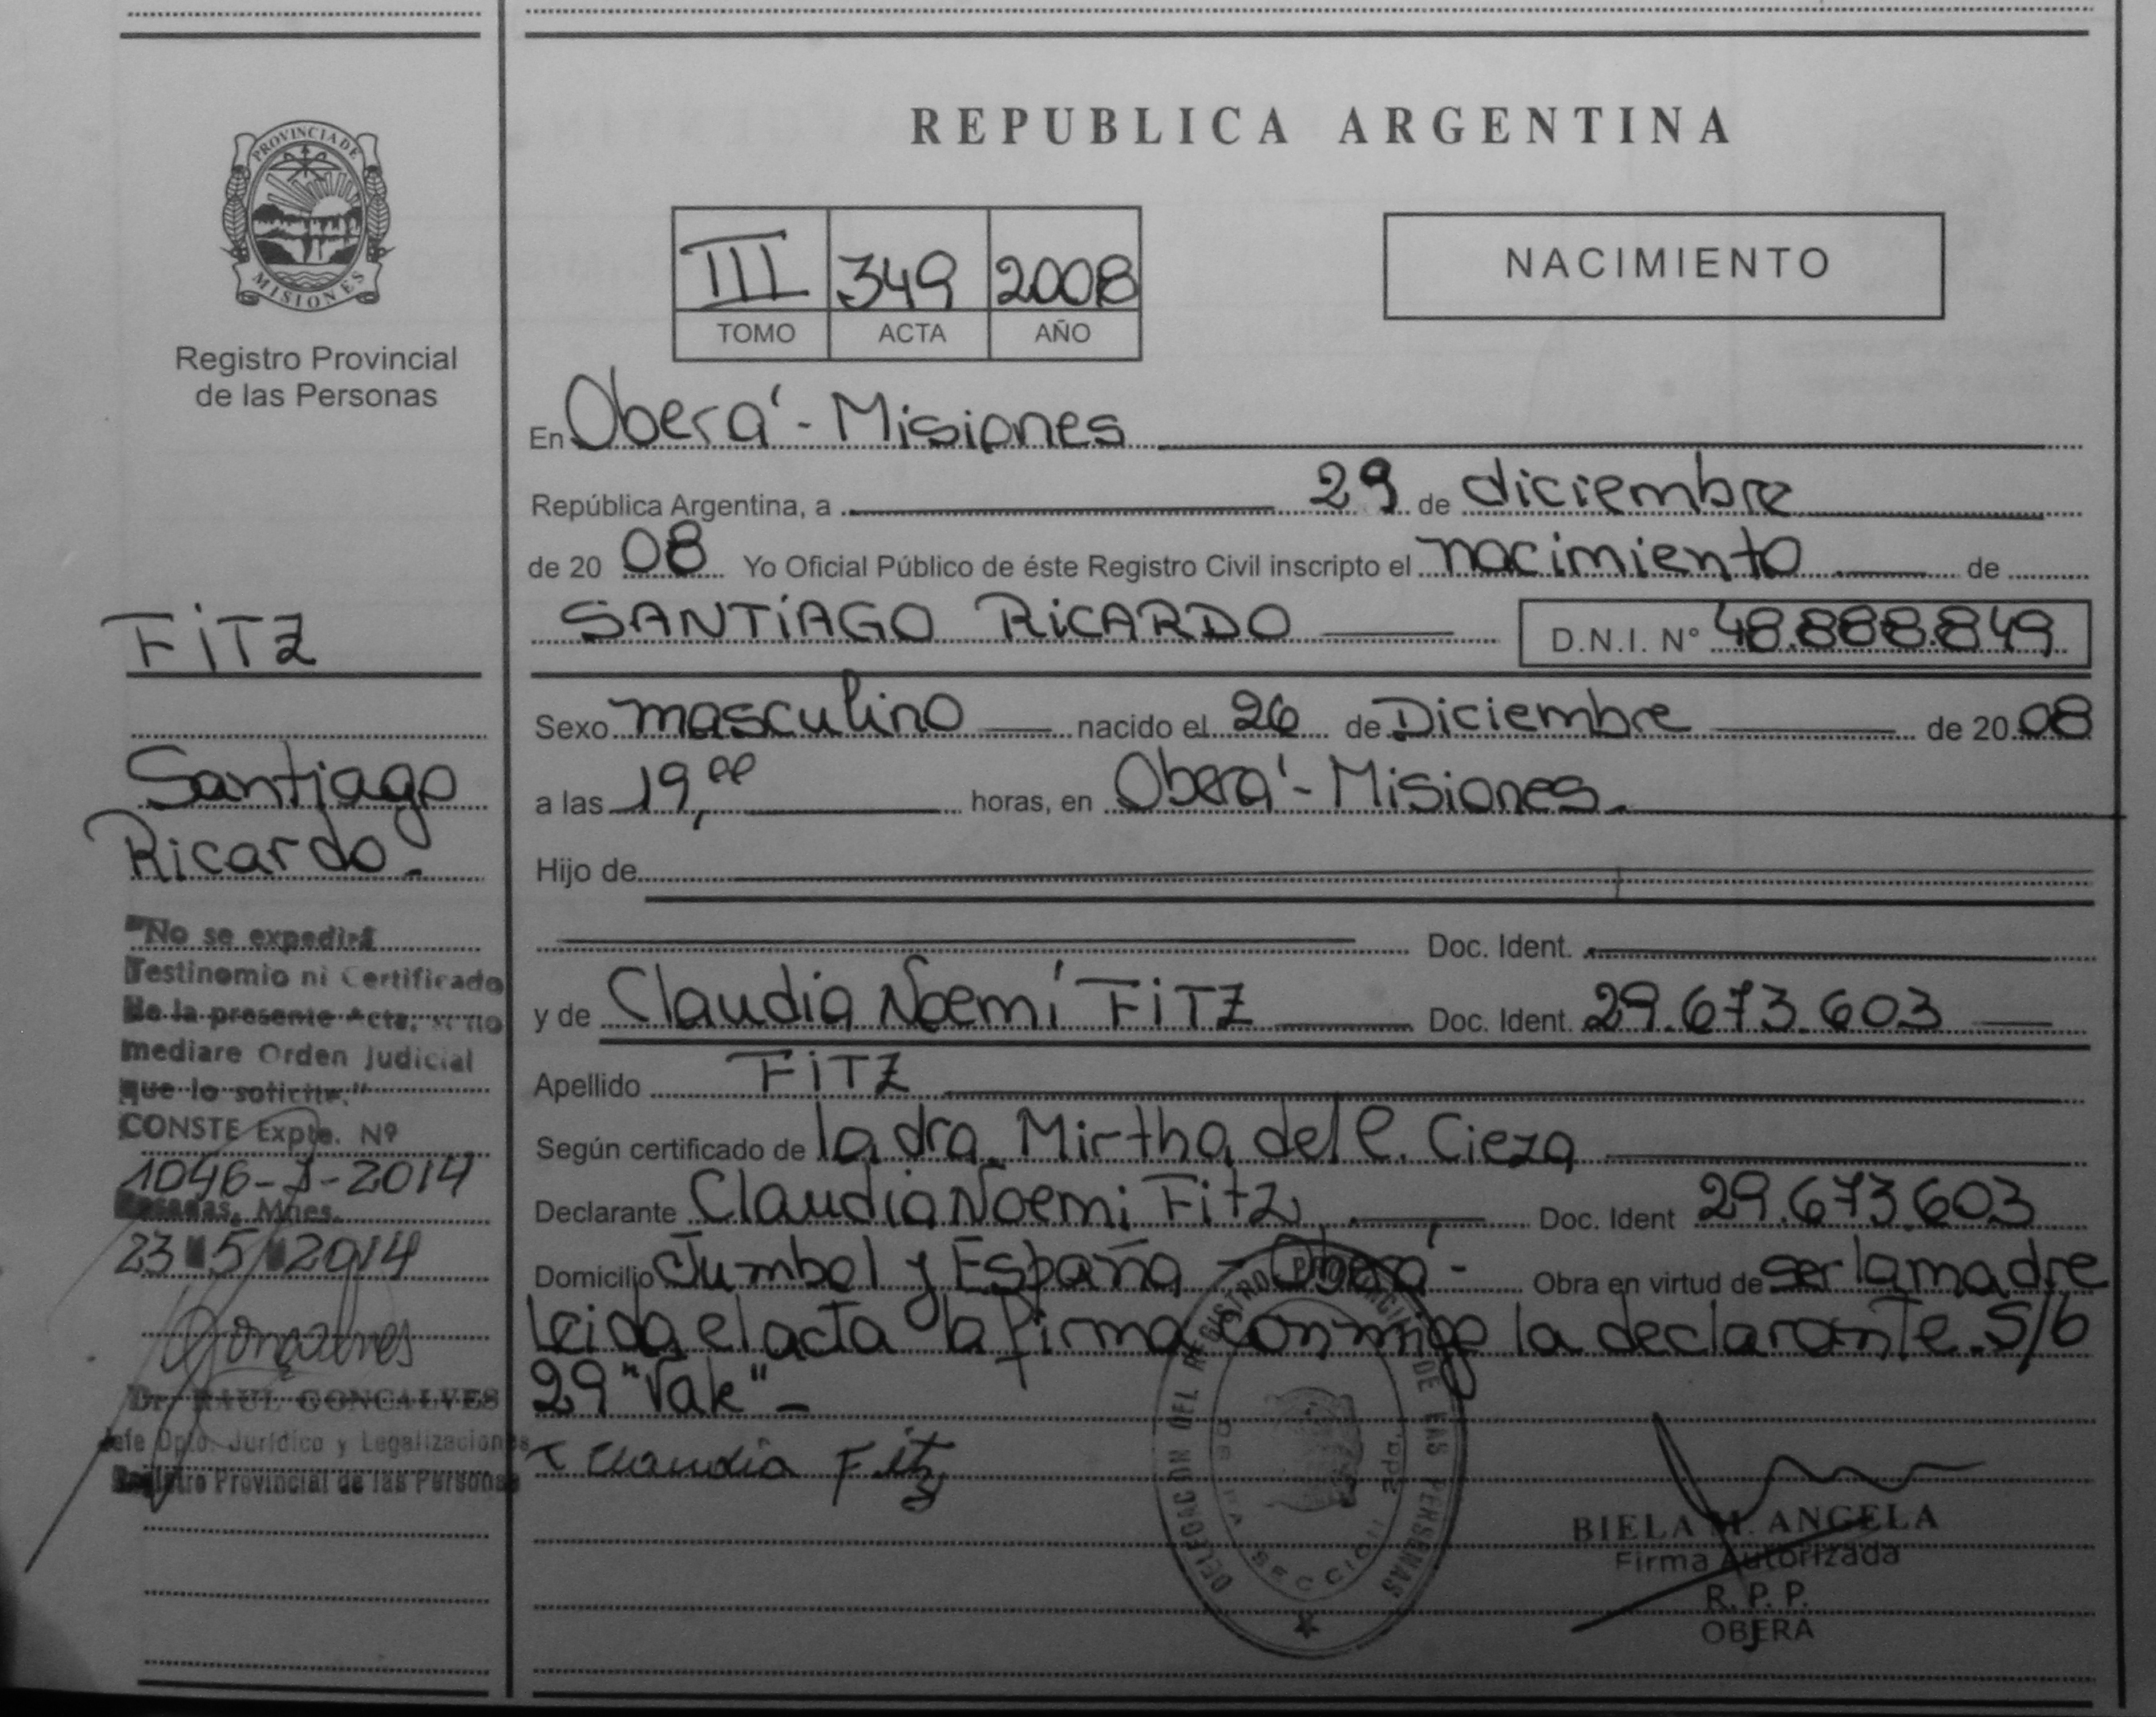 PROVINCIA DE
MISIONES
Registro Provincial
de las Personas
FiTZ
Santiago
Ricardo.
"No se expedirá
Testinomio ni Certificado
de la presente Acta, si no
mediare Orden Judicial
que lo solicite."
CONSTE Expte. Nº
1046-J-2014
Posadas, Mnes.
23 5 2014
Goncalves
Dr. RAUL GONCALVES
Jefe Dpto. Jurídico y Legalizaciones
Registro Provincial de las Personas
REPUBLICA ARGENTINA
III 349 2008
TOMO ACTA AÑO
NACIMIENTO
En Oberá - Misiones
República Argentina, a 29 de diciembre
de 20 08 Yo Oficial Público de éste Registro Civil inscripto el nacimiento de
SANTiAGO RiCARDO D.N.I. Nº 48.888.849
Sexo masculino nacido el 26 de Diciembre de 20 08
a las 19,00 horas, en Oberá - Misiones.
Hijo de
Doc. Ident.
y de Claudia Noemí FiTZ Doc. Ident. 29.673.603
Apellido FiTZ
Según certificado de la dra. Mirtha del C. Cieza
Declarante Claudia Noemi Fitz, Doc. Ident 29.673.603
Domicilio y España - Oberá - Obra en virtud de ser la madre
leida el acta la firma conmigo la declarante. S/b
29 "Vale" -
Claudia Fitz
DELEGACION DEL REGISTRO PROVINCIAL DE LAS PERSONAS
2da. SECCION
BIELA M. ANGELA
Firma Autorizada
R. P. P.
OBERA